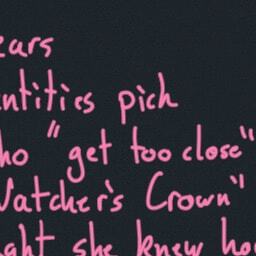 ears
entities pick
ho "get too close"
Watcher's Crown"
ght she knew ho